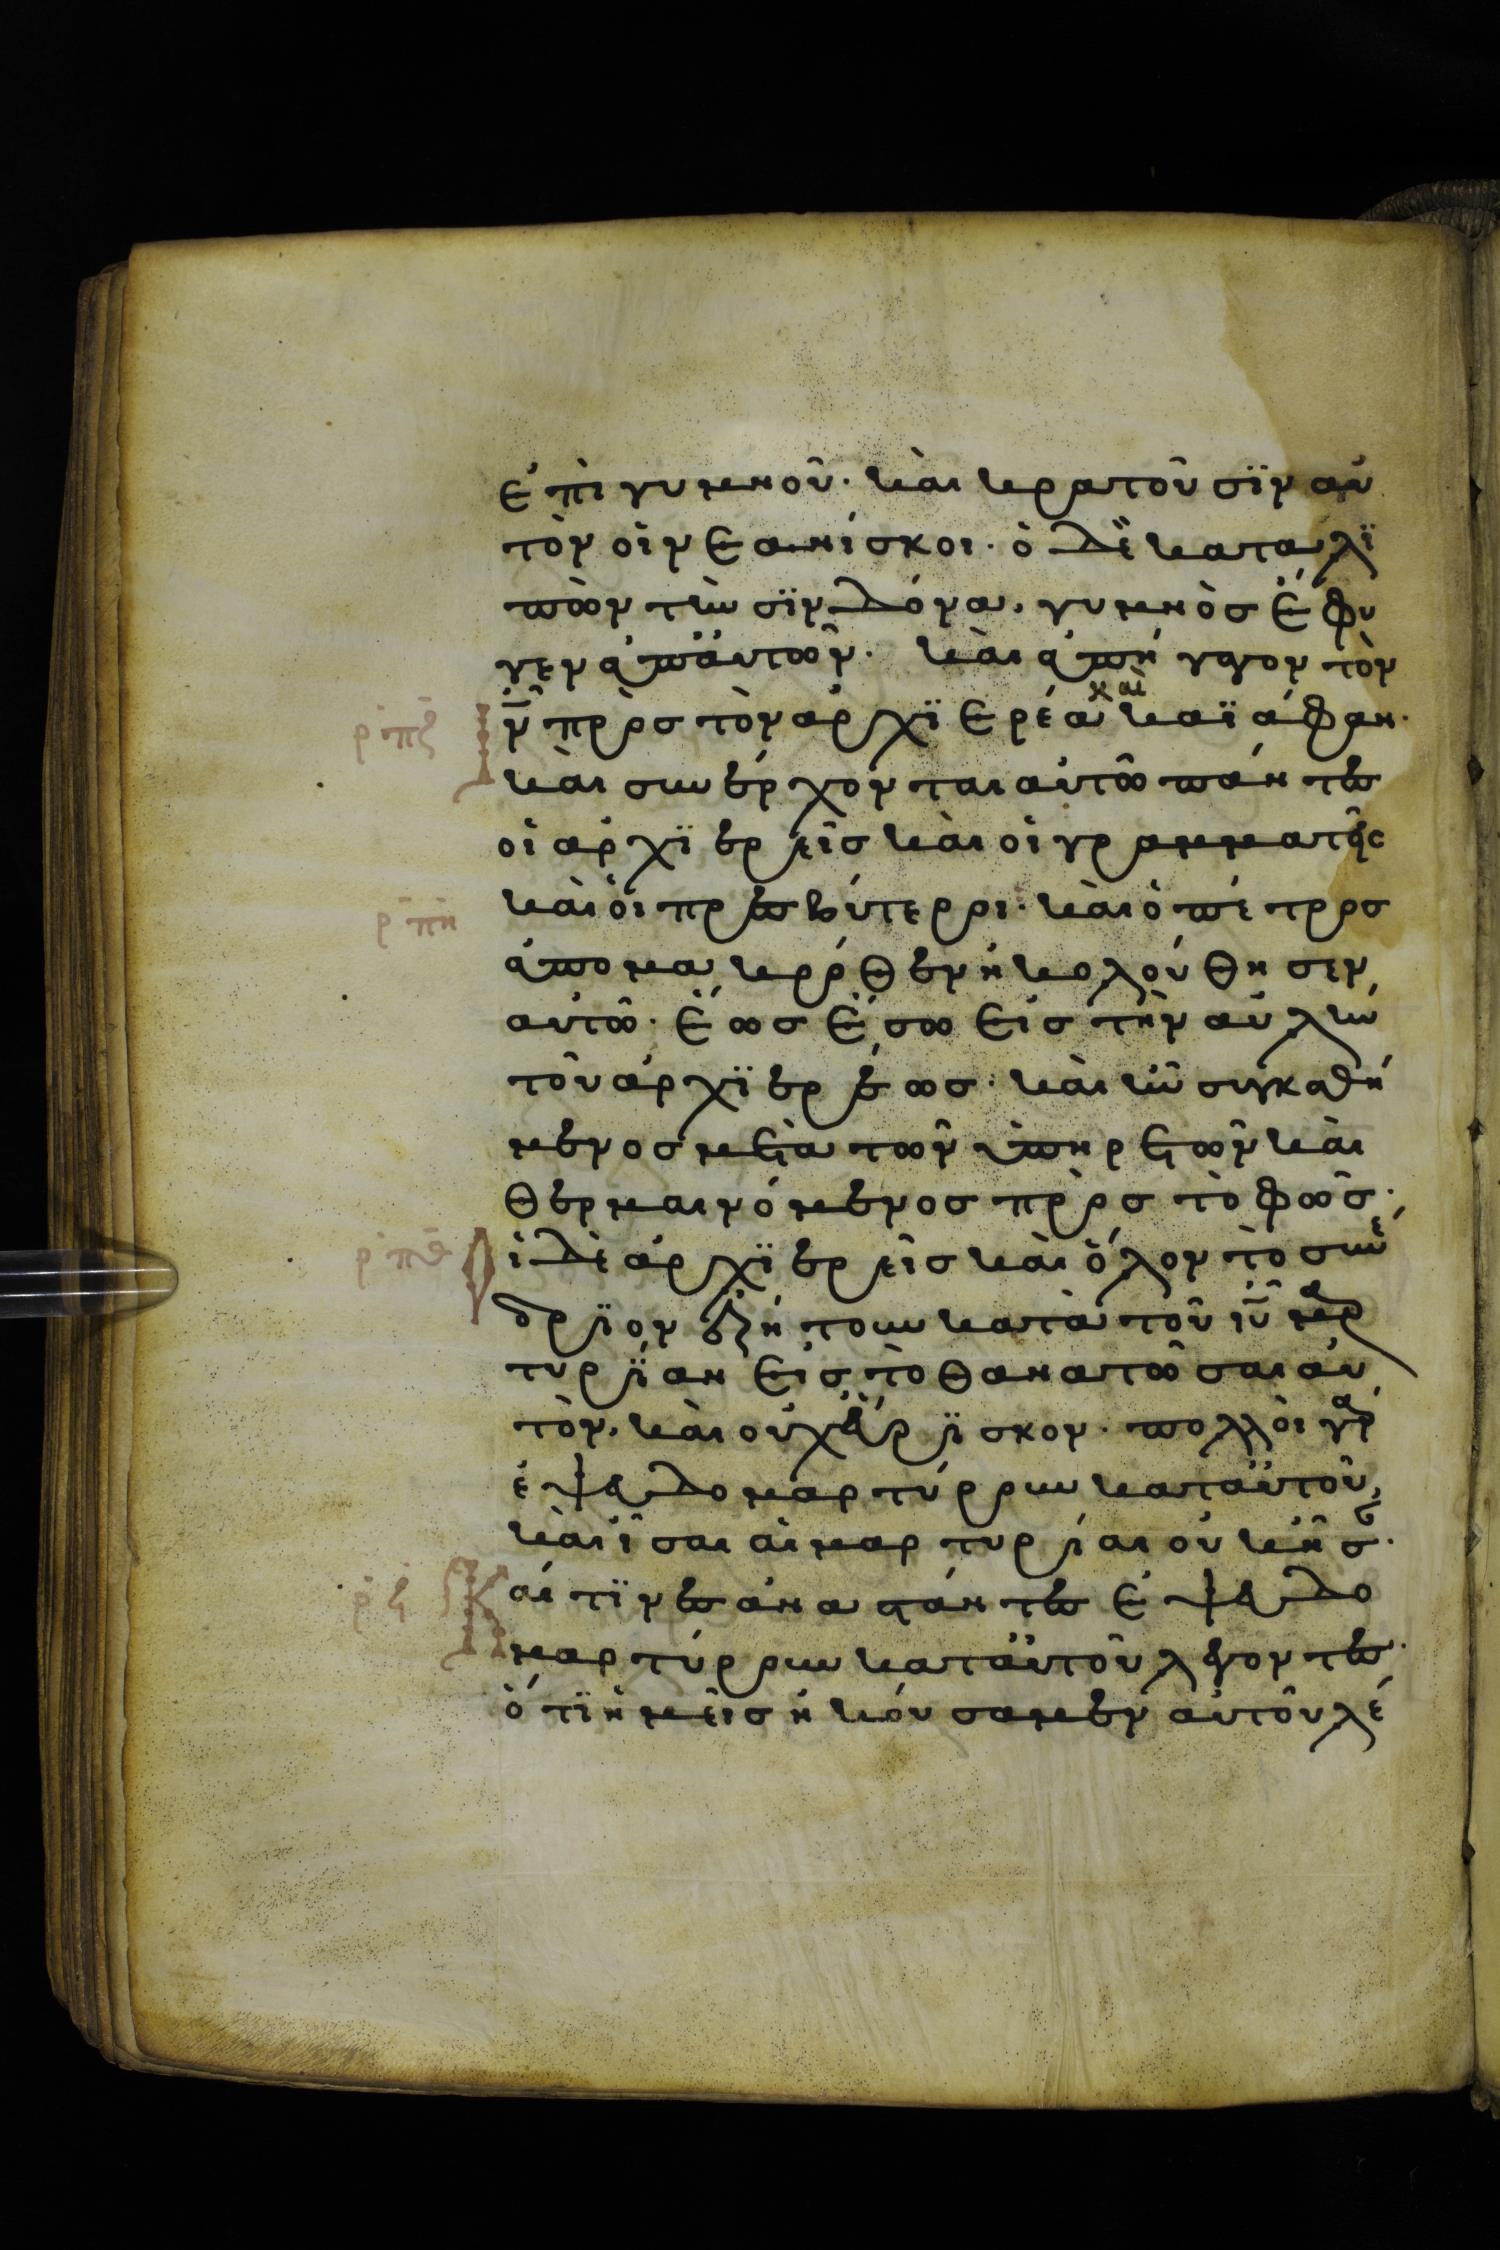 ἐπὶ γυμνοῦ· καὶ κρατοῦσϊν αὐ
τὸν οἱ νεανίσκοι· ὁ δὲ καταλϊ
πὼν τὴν σϊνδόνα, γυμνὸσ ἔφυ
γεν ἀπ᾽ἀυτῶν· καὶ ἀπήγαγον τὸν
ρπζ ιν̅ πρὸσ τὸν ἀρχϊερέα καὶ καϊάφαν·
καὶ συνέρχονται αὐτῶ πάντεσ
οἱ ἀρχϊερεῖσ καὶ οἱ γραμματεῖς
ρπη καὶ ὁι πρεσβύτεροι· καὶ ὁ πέτροσ
ἀπομακρόθεν ἠκολούθησεν
αὐτῶ· ἕωσ ἔσω εἰσ τὴν αὐλὴν
τοῦ ἀρχϊερέωσ· καὶ ἦν συγκαθή
μενοσ μετὰ τῶν ὑπηρετῶν καὶ
θερμαινόμενοσ πρὸσ τὸ φῶσ·
ρπθ ὁι δὲ ἀρχϊερεῖσ καὶ ὅλον τὸ συνέ
δρϊον ἐζήτουν κατὰ τοῦ ιυ̅ μαρ
τυρΐαν εἰσ τὸ θανατῶσαι αὐ
τὸν, καὶ οὐχ ἕυρϊσκον· πολλὸι γὰρ
ἐψευδομαρτύρουν κατ᾽ἀυτοῦ,
καὶ ἶσαι αἱ μαρτυρίαι οὐκ ἦσαν·
ρϟ Καί τϊνεσ ἀναστάντεσ ἐψευδο
μαρτύρουν κατ᾽ἀυτοῦ λέγοντεσ·
ὅτϊ ἡμεῖσ ἠκούσαμεν αὐτοῦ λέ